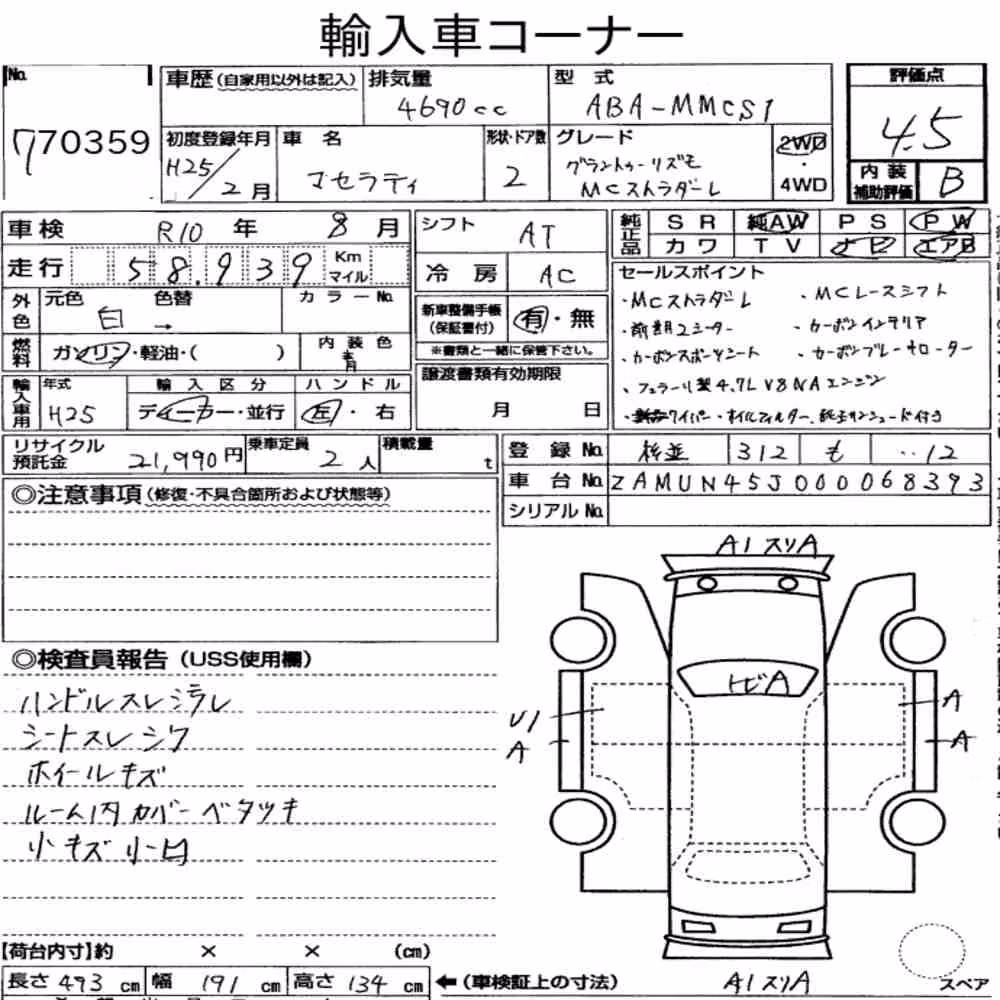 輸入車コーナー
No.
770359
車歴(自家用以外は記入)
排気量
4690cc
型式
ABA-MMCS1
評価点
4.5
初度登録年月
H25/2月
車名
マセラティ
形状・ドア数
2
グレード
グラントゥーリズモ
MCストラダーレ
2WD
・
4WD
内装
補助評価
B
車検 R10年 8月
シフト AT
純正品
SR 純AW PS PW
カワ TV ナビ エアB
走行 58.939 Km マイル
冷房 AC
セールスポイント
・MCストラダーレ ・MCレースシフト
・前期2シーター ・カーボンインテリア
・カーボンスポーツシート ・カーボンブレーキローター
・フェラーリ製4.7L V8NAエンジン
ワイパー・オイルフィルター
外色
元色 色替 カラーNo.
白 →
新車整備手帳
(保証書付)
有・無
※書類と一緒に保管下さい。
燃料
ガソリン・軽油・( )
内装色
譲渡書類有効期限
月 日
輸入車用
年式 輸入区分 ハンドル
H25 ディーラー・並行 左・右
リサイクル
預託金
21,990円
乗車定員
2人
積載量
t
登録No. 杉並 312 も ・・12
車台No. ZAMUN45J000068393
シリアルNo.
◎注意事項(修復・不具合箇所および状態等)
A1スリA
トビA
U1
A
A
A
◎検査員報告(USS使用欄)
ハンドルスレシミラレ
シートスレシワ
ホイールキズ
ルーム内カバーベタツキ
小キズ小凹
【荷台内寸】約 × × (cm)
長さ493cm 幅191cm 高さ134cm
←(車検証上の寸法)
A1スリA
スペア